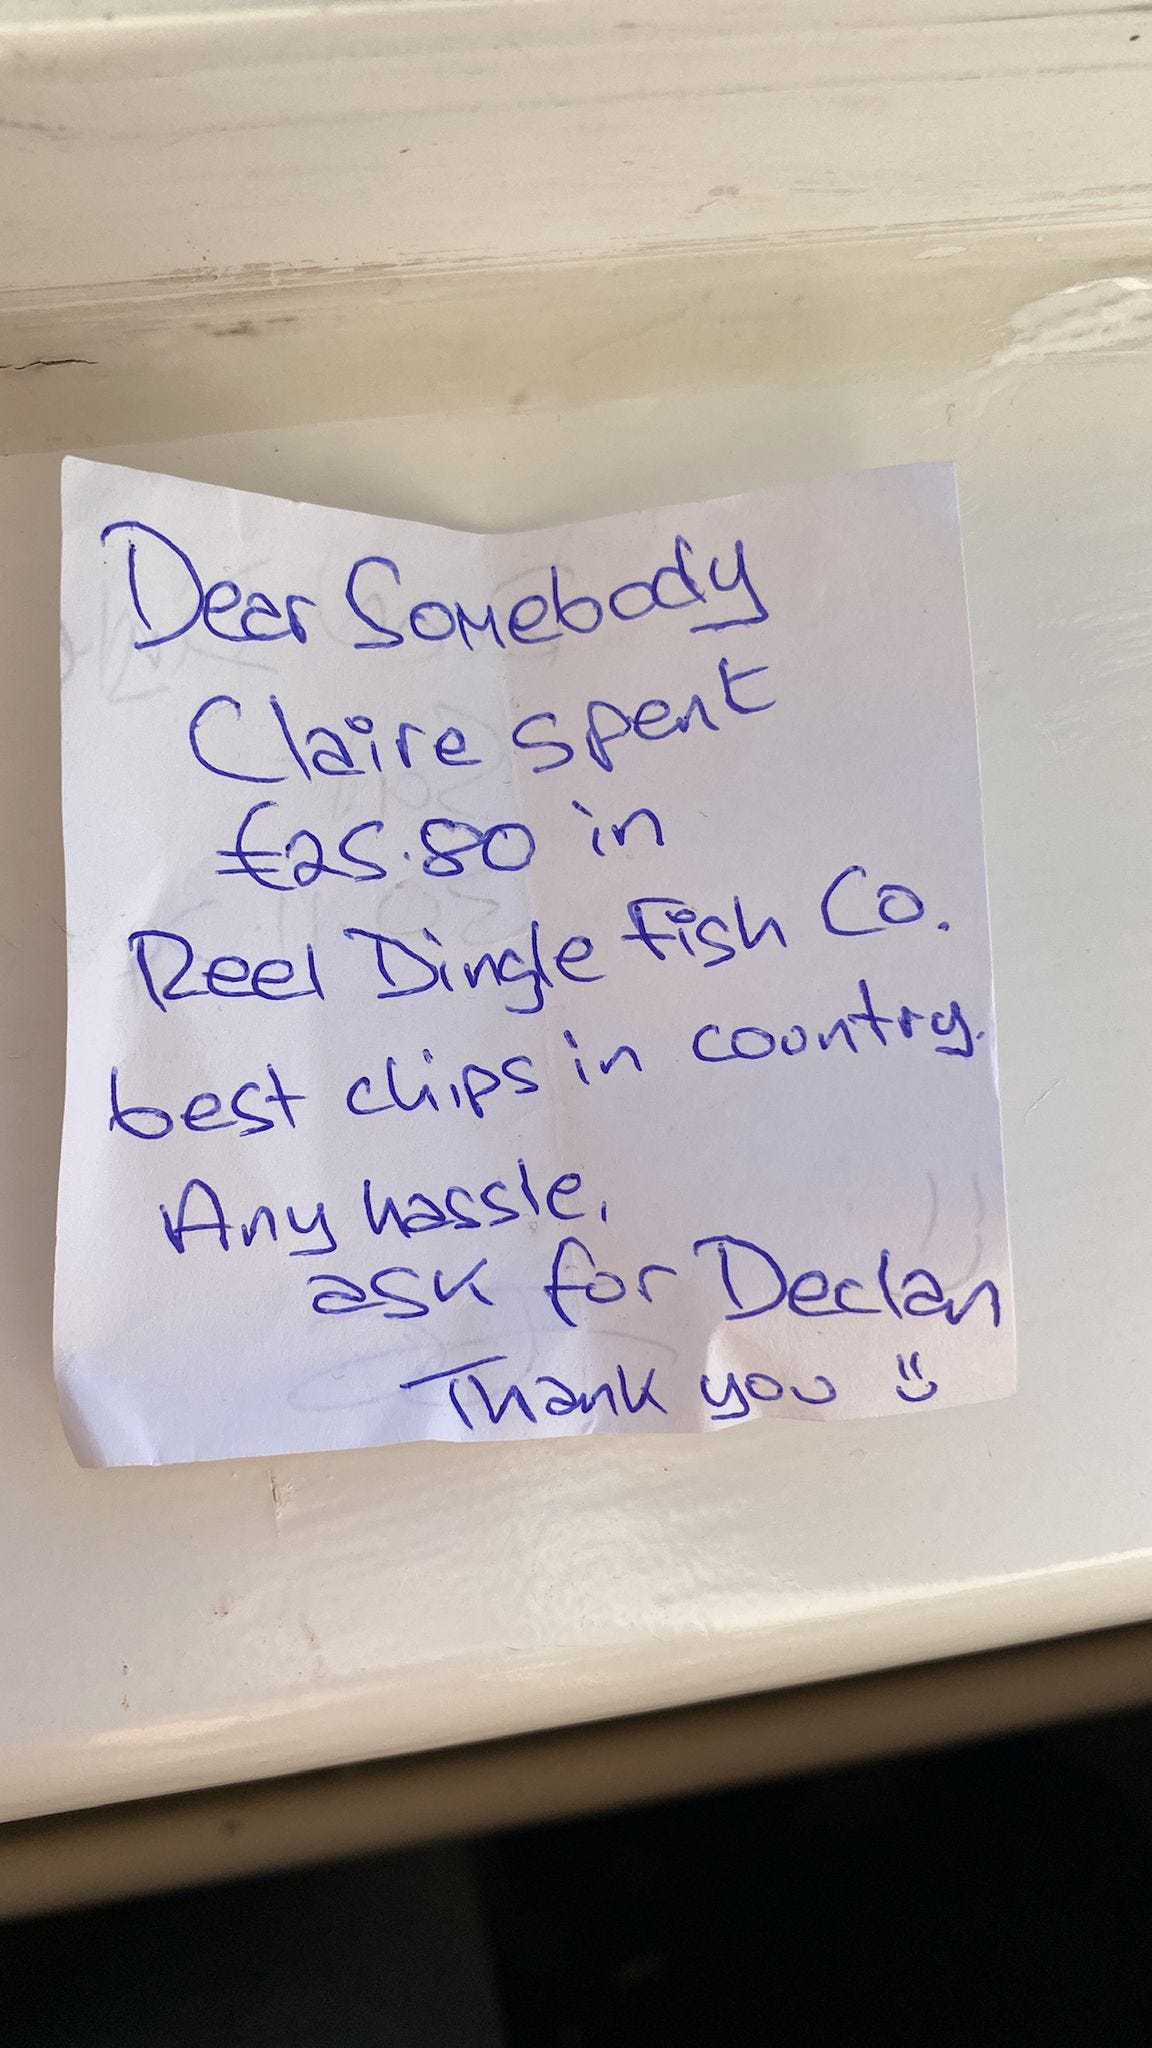 Dear Somebody
Claire spent
€25.80 in
Reel Dingle Fish Co.
best chips in country.
Any hassle,
ask for Declan
Thank you